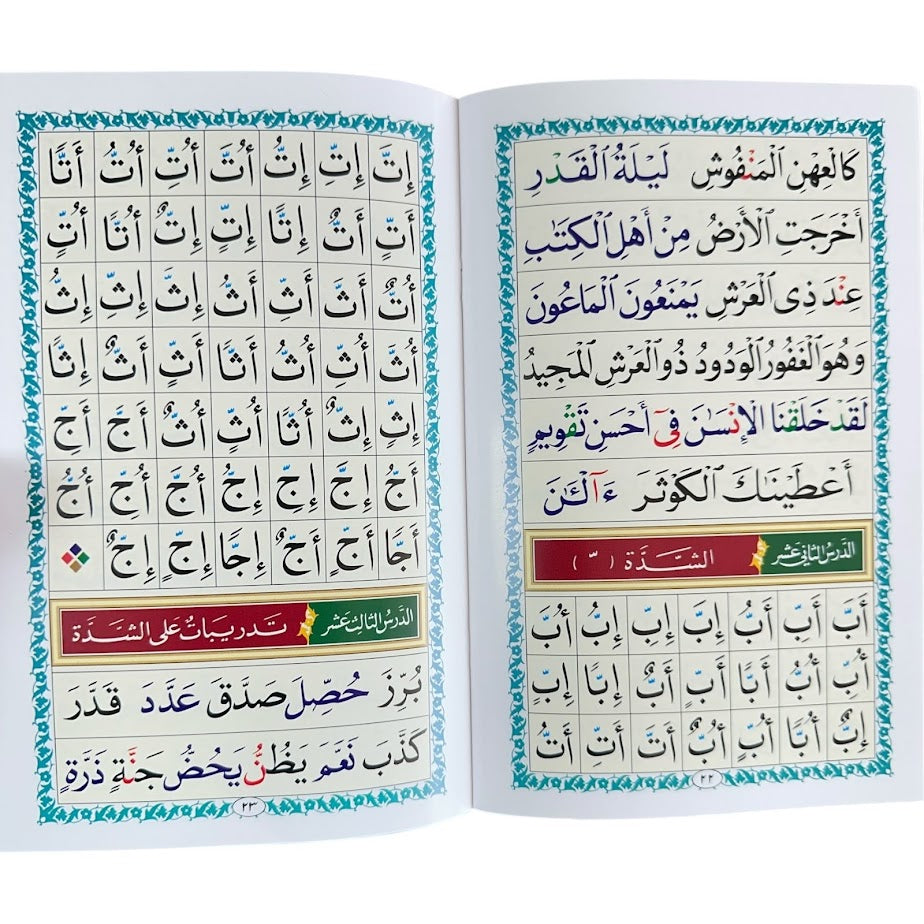 كَٱلْعِهْنِ ٱلْمَنْفُوشِ لَيْلَةُ ٱلْقَدْرِ
أَخْرَجَتِ ٱلْأَرْضُ مِنْ أَهْلِ ٱلْكِتَٰبِ
عِنْدَ ذِى ٱلْعَرْشِ يَمْنَعُونَ ٱلْمَاعُونَ
وَهُوَ ٱلْغَفُورُ ٱلْوَدُودُ ذُو ٱلْعَرْشِ ٱلْمَجِيدُ
لَقَدْ خَلَقْنَا ٱلْإِنْسَٰنَ فِىٓ أَحْسَنِ تَقْوِيمٍ
أَعْطَيْنَٰكَ ٱلْكَوْثَرَ ءَآلْـَٰٔنَ
الدَّرسُ الثَّانِي عَشَر الشَّدَّة ( ّ )
أَبَّ أَبِّ أَبُّ إِبَّ إِبِّ إِبُّ أُبَّ
أُبِّ أُبُّ أَبًّا أَبٍّ أَبٌّ إِبًّا إِبٍّ
إِبٌّ أُبًّا أُبٍّ أُبٌّ أَتَّ أَتِّ أَتُّ
٢٢
إِتَّ إِتِّ إِتُّ أُتَّ أُتِّ أُتُّ أَتًّا
أَتٍّ أَتٌّ إِتًّا إِتٍّ إِتٌّ أُتًّا أُتٍّ
أُتٌّ أَثَّ أَثِّ أَثُّ إِثَّ إِثِّ إِثُّ
أُثَّ أُثِّ أُثُّ أَثًّا أَثٍّ أَثٌّ إِثًّا
إِثٍّ إِثٌّ أُثًّا أُثٍّ أُثٌّ أَجَّ أَجِّ
أَجُّ إِجَّ إِجِّ إِجُّ أُجَّ أُجِّ أُجُّ
أَجًّا أَجٍّ أَجٌّ إِجًّا إِجٍّ إِجٌّ
الدَّرسُ الثَّالِث عَشَر تَدرِيبَاتٌ عَلَى الشَّدَّة
بُرِّزَ حُصِّلَ صَدَّقَ عَدَّدَ قَدَّرَ
كَذَّبَ نَعَّمَ يَظُنُّ يَحُضُّ جَنَّةٍ ذَرَّةٍ
٢٣